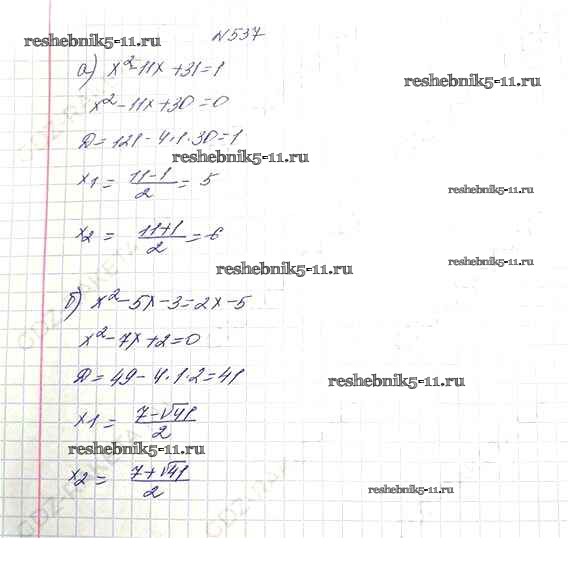 N537
reshebnik5-11.ru
а) x²-11x+31=1
reshebnik5-11.ru
x²-11x+30=0
Д=121-4·1·30=1
reshebnik5-11.ru
x1 = (11-1)/2 = 5
reshebnik5-11.ru
x2 = (11+1)/2 = 6
reshebnik5-11.ru
reshebnik5-11.ru
б) x²-5x-3=2x-5
x²-7x+2=0
Д=49-4·1·2=41
reshebnik5-11.ru
x1 = (7-√41)/2
reshebnik5-11.ru
x2 = (7+√41)/2
reshebnik5-11.ru